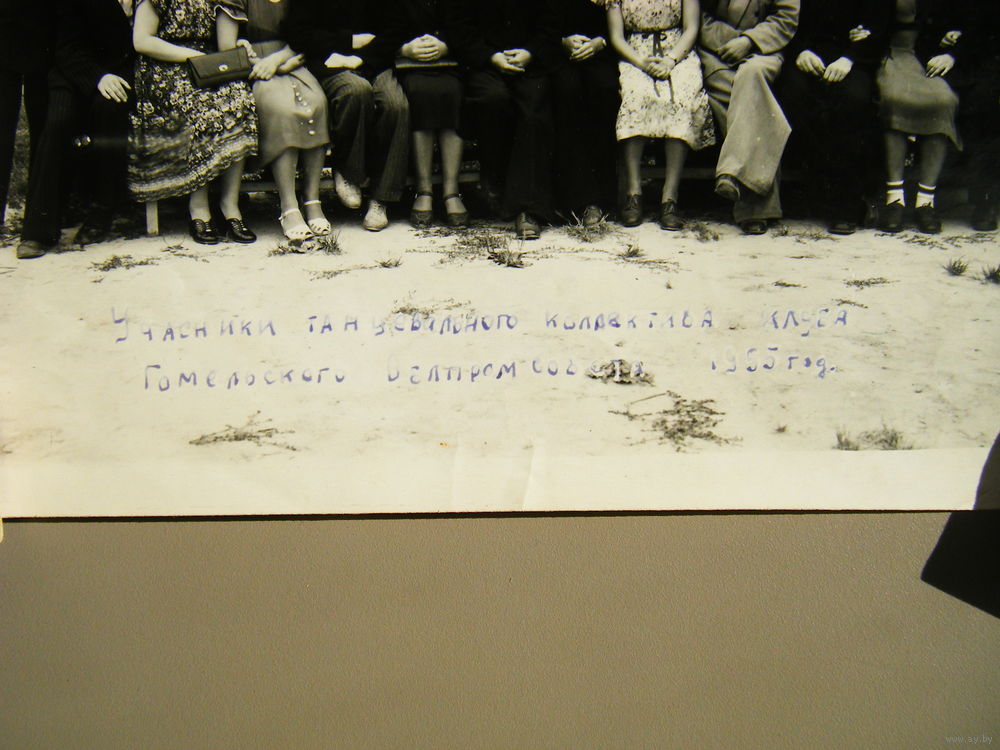 Учасники танцевального коллектива клуба
Гомельского Облпромсовета 1955 год.
www.ay.by